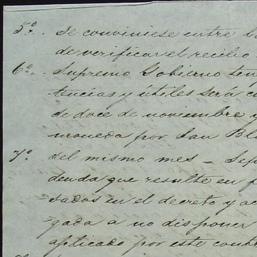 5º. Se conviniese entre
de verificar el recibo
6º. Supremo Gobierno
tencias y útiles será
de doce de noviembre y
moneda por San Bl
7º. del mismo mes — Se
deuda que resulte en
sados en el decreto y ac
gada a no disponer
aplicado por este con